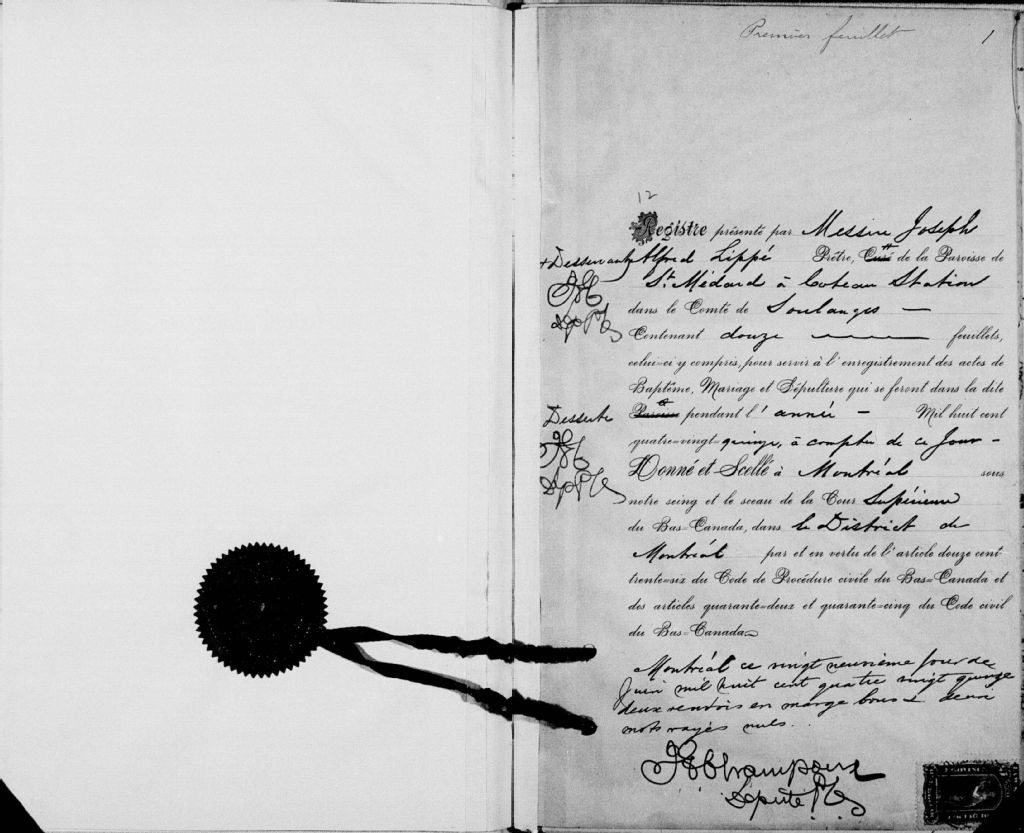 Premier feuillet 1
12
Registre présenté par Messire Joseph
+ Desservant Alfred Lippé Prêtre, Curé de la Paroisse de
St Médard à Coteau Station
dans le Comté de Soulanges —
Contenant douze ——— feuillets,
celui=ci y compris, pour servir à l'enregistrement des actes de
Baptême, Mariage et Sépulture qui se feront dans la dite
Desserte
Paroisse pendant l'année — Mil huit cent
quatre=vingt=quinze, à compter de ce jour —
Donné et Scellé à Montréal sous
notre seing et le sceau de la Cour Supérieure
du Bas=Canada, dans le District de
Montréal par et en vertu de l'article douze cent
trente=six du Code de Procédure civile du Bas=Canada et
des articles quarante=deux et quarante=cinq du Code civil
du Bas=Canada
Montréal ce vingt neuvième jour de
Juin mil huit cent quatre vingt quinze
deux renvois en marge bons & deux
mots rayés nuls.
Député